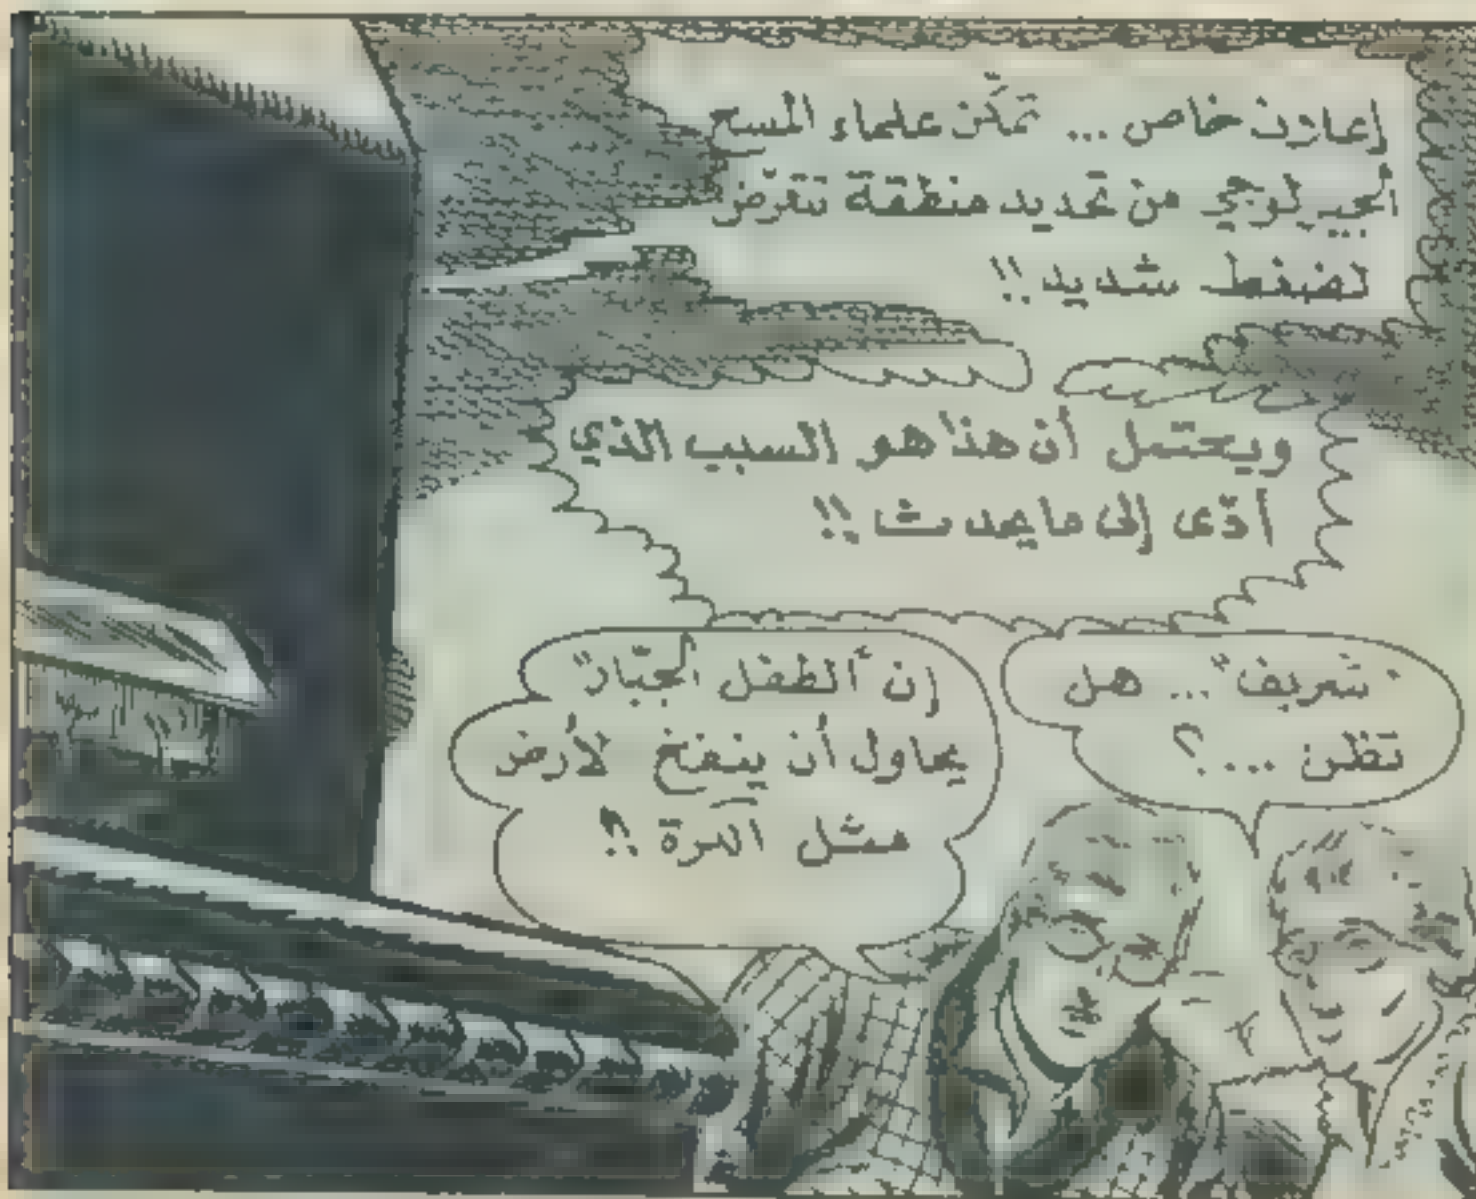 إعلان خاص ... تمكّن علماء المسح
الجيولوجي من تحديد منطقة تتعرّض
لضغط شديد !!
ويحتمل أن هذا هو السبب الذي
أدّى إلى ما يحدث !!
"تعريف" ... هل
تظن ... ؟
إن "الطفل الجبّار"
يحاول أن ينفخ الأرض
مثل الكرة !؟